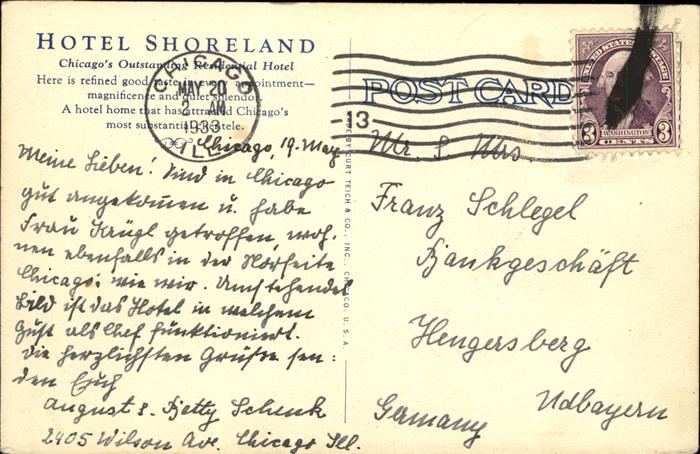 HOTEL SHORELAND
Chicago's Outstanding Residential Hotel
Here is refined good taste in every appointment—
magnificence and quiet splendor.
A hotel home that has attracted Chicago's
most substantial clientele.
CHICAGO
MAY 20
2 AM
1933
ILL.
13
POST CARD
UNITED STATES POSTAGE
3 WASHINGTON 3
CENTS
MADE BY CURT TEICH & CO., INC., CHICAGO, U. S. A.
Chicago, 19. May
Meine Lieben! Sind in Chicago
gut angekommen u. habe
Frau getroffen, woh-
nen ebenfalls in der Norseite
Chicago: wie wir. Umstehendes
Bild ist das Hotel in welchem
Gust als Chef funktioniert.
Die herzlichsten Grüße sen:
den Euch
August & Betty Schenk
2405 Wilson Ave. Chicago Ill.
Mr. & Mrs
Franz Schlegel
Bankgeschäft
Hengersberg
Ndbayern
Germany